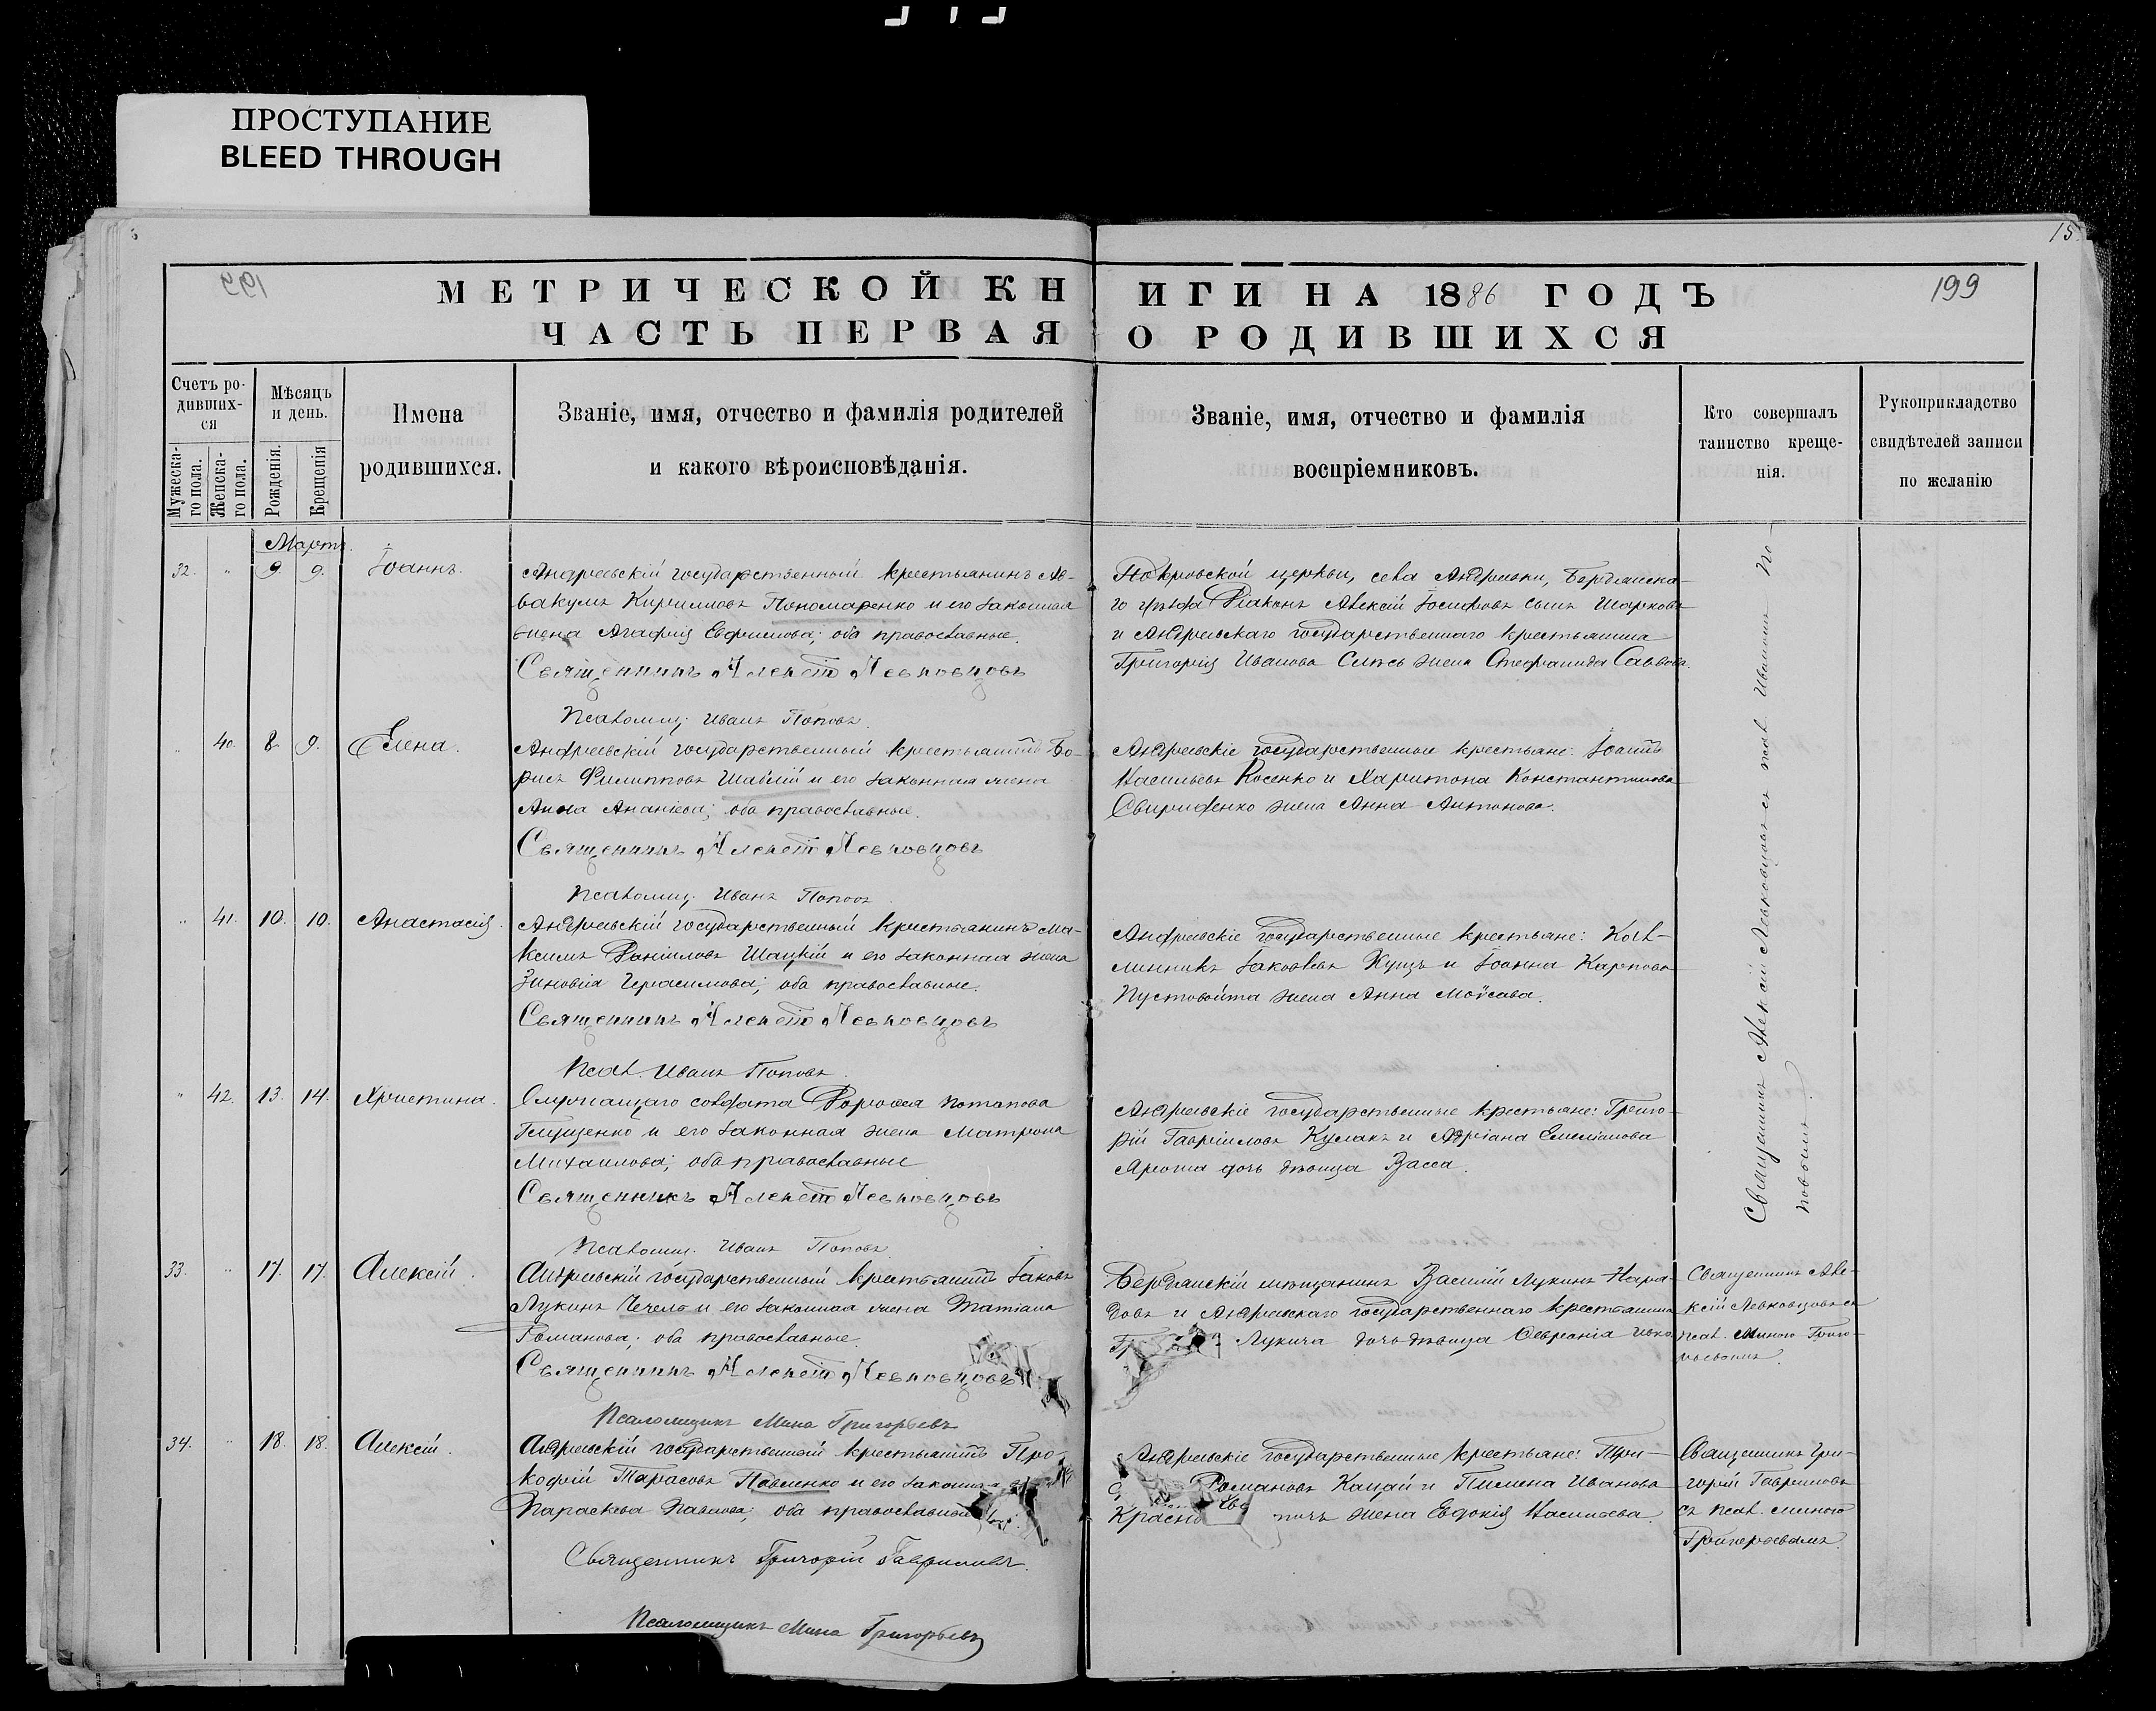 ПРОСТУПАНИЕ
BLEED THROUGH
15.
199
МЕТРИЧЕСКОЙ КНИГИ НА 1886 ГОДЪ
ЧАСТЬ ПЕРВАЯ О РОДИВШИХСЯ
Счетъ ро-
дивших-
ся
Мужеска-
го пола.
Женска-
го пола.
Мѣсяцъ
и день.
Рожденія.
Крещенія
Имена
родившихся.
Званіе, имя, отчество и фамилія родителей
и какого вѣроисповѣданія.
Званіе, имя, отчество и фамилія
воспріемниковъ.
Кто совершалъ
таинство креще-
нія.
Рукоприкладство
свидѣтелей записи
по желанію
Мартъ.
32. " 9. 9. Іоаннъ.
Андреевскій государственный крестьянинъ Ав-
вакумъ Кирилловъ Пономаренко и его законная
жена Агафія; оба православные.
Священникъ Алексій Левковцовъ
Псаломщ. Иванъ Поповъ.
Покровской церкви, села Андреевки, Бердянска-
го уѣзда Діаконъ Алексій Іосифовъ сынъ
и Андреевскаго государственнаго крестьянина
Григорія Иванова жена Стефанида Саввова.
" 40. 8. 9. Елена.
Андреевскій государственный крестьянинъ Бо-
рисъ Филипповъ и его законная жена
Анна Ананіева; оба православные.
Священникъ Алексій Левковцовъ
Псаломщ. Иванъ Поповъ
Андреевскіе государственные крестьяне: Іоаннъ
Васильевъ Косенко и Харитона Константинова
Свириденко жена Анна Антонова.
" 41. 10. 10. Анастасія.
Андреевскій государственный крестьянинъ Ма-
ксимъ Даніиловъ Шацкій и его законная жена
Зиновія Герасимова; оба православные.
Священникъ Алексій Левковцовъ
Псал. Иванъ Поповъ.
Андреевскіе государственные крестьяне: Кал-
линникъ Іаковлевъ Куцъ и Іоанна Карпова
Пустовойта жена Анна Моѵсеева.
" 42. 13. 14. Христина.
Служащаго солдата Дороѳея Потапова
Глущенко и его законная жена Матрона
Михаилова; оба православные
Священникъ Алексій Левковцовъ
Псаломщ. Иванъ Поповъ.
Андреевскіе государственные крестьяне: Григо-
рій Гавріиловъ Кулакъ и Адріана Емеліанова
дочь дѣвица Васса.
Священникъ Алексій Левковцовъ съ псал. Иваномъ По-
повымъ.
33. " 17. 17. Алексій.
Андреевскій государственный крестьянинъ Іаковъ
Лукинъ Чечело и его законная жена Татіана
Романова; оба православные.
Священникъ Алексій Левковцовъ
Псаломщикъ Мина Григорьевъ
Бердянскій мѣщанинъ Василій Лукинъ
и Андреевскаго государственнаго крестьянина
Лукича дочь дѣвица
Священникъ Але-
ксій Левковцовъ съ
псал. Миною Григо-
рьевымъ.
34. " 18. 18. Алексій.
Андреевскій государственный крестьянинъ Про-
кофій Тарасовъ Павленко и его законная
Параскева Павлова; оба православные
Священникъ Григорій Гавриловъ.
Псаломщикъ Мина Григорьевъ
Андреевскіе государственные крестьяне:
Романовъ Кацай и Пимена Иванова
жена Евдокія Васильева.
Священникъ Гри-
горій Гавриловъ
съ псал. Миною
Григорьевымъ.